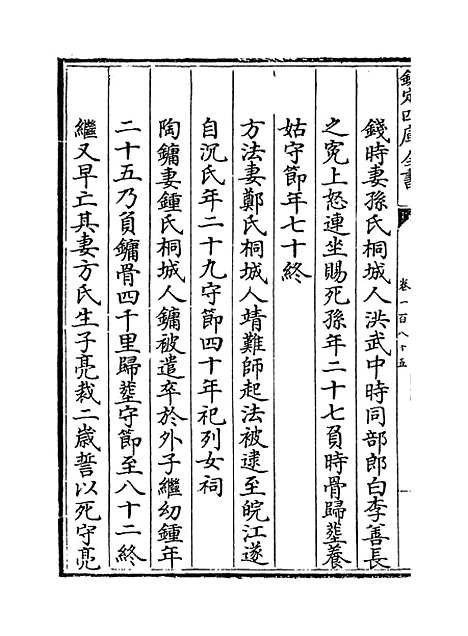 欽定四庫全書
卷一百八十五
錢時妻孫氏桐城人洪武中時同部郎白李善長
之寃上怒連坐賜死孫年二十七負時骨歸塟養
姑守節年七十終
方法妻鄭氏桐城人靖難師起法被逮至皖江遂
自沉氏年二十九守節四十年祀列女祠
陶鏞妻鍾氏桐城人鏞被遣卒於外子繼幼鍾年
二十五乃負鏞骨四千里歸塟守節至八十二終
繼又早亡其妻方氏生子亮裁二歲誓以死守亮